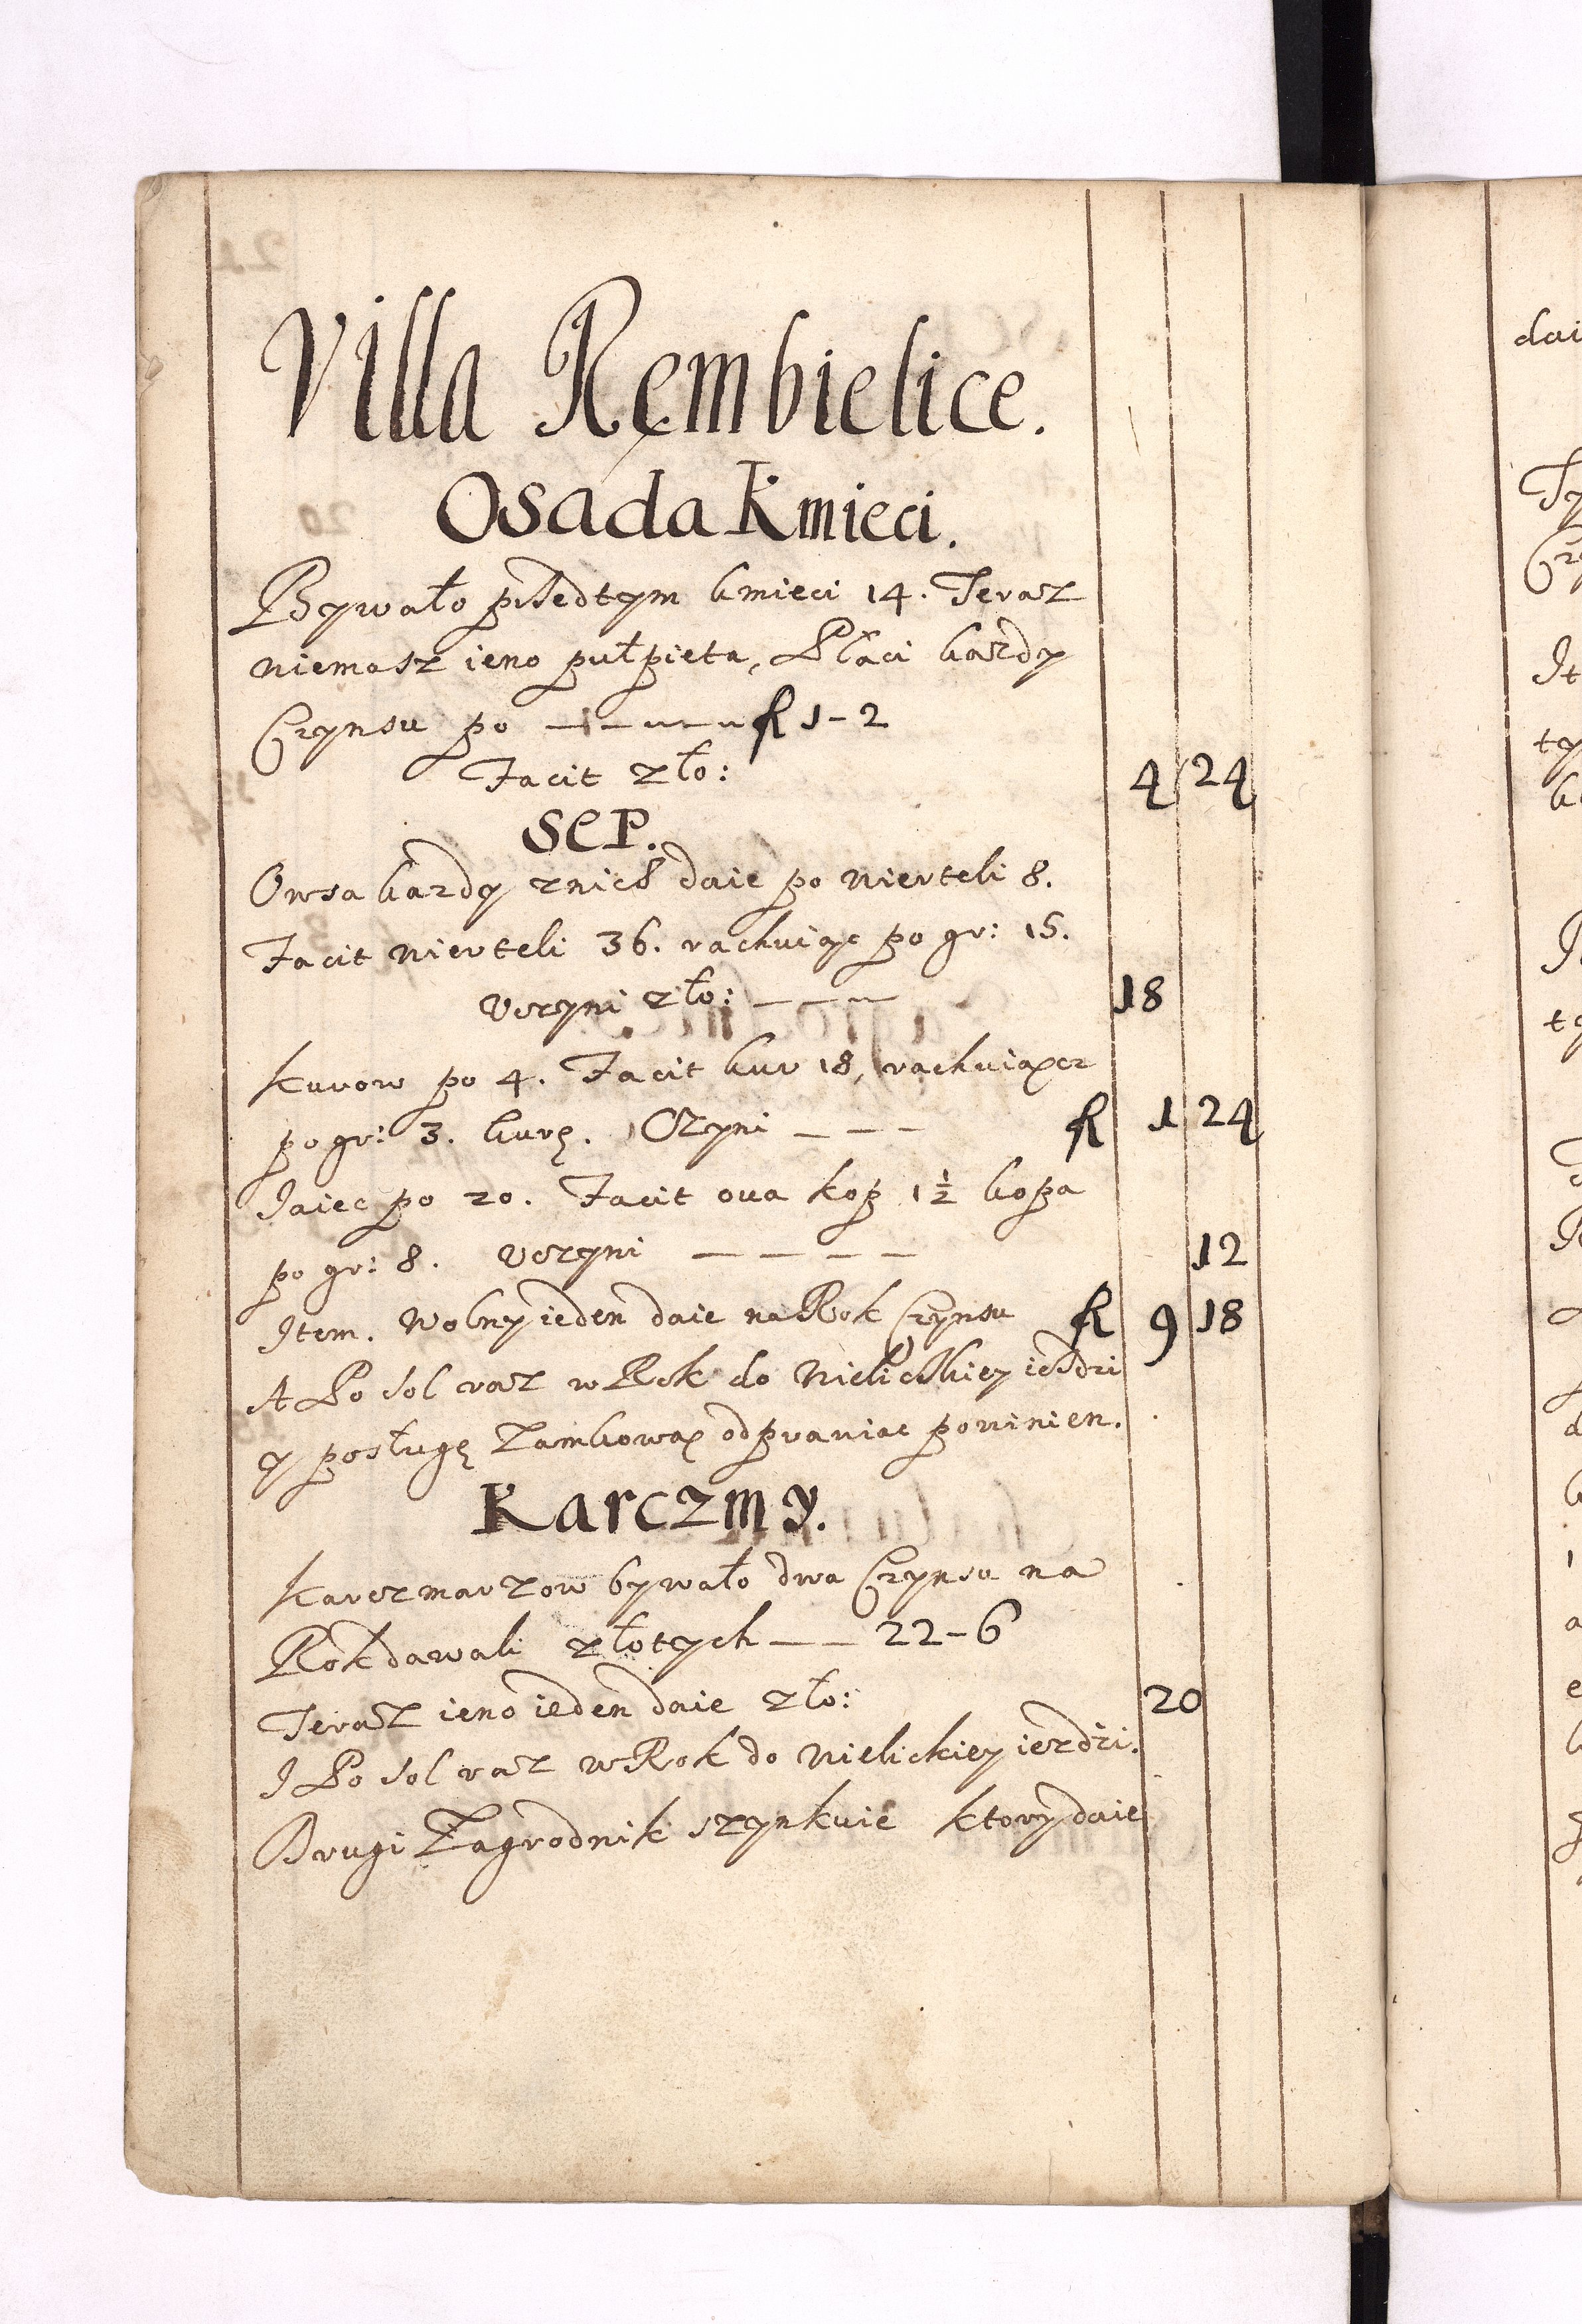 Villa Rembielice.
Osada Kmieci.
Bywało przedtym kmieci 14. Teraz
niemasz ieno pułpięta, Płaci kazdy
Czynsu po fl 1-2
Facit zło: 4 24
SEP.
Owsa kazdy znich daie po wierteli 8.
Facit wierteli 36. rachuiąc po gr: 15.
Vczyni zło: 18
Kurow po 4. Facit kur 18, rachuiącz
po gr: 3. kurę. Czyni fl 1 24
Iaiec po 20. Facit oua kop 1½ kopa
po gr: 8. Vczyni 12
Item. Wolny ieden daie na Rok Czynsu fl 9 18
A Po sol raz w Rok do Wielickiey iezdzi
y posługę Zamkową odprawiac powinien.
Karczmy.
Karczmarzow bywało dwa Czynsu na
Rok dawali złotych 22-6
Teraz ieno ieden daie zło: 20
I Po sol raz w Rok do Wielickiey iezdzi.
Drugi Zagrodnik szynkuie ktory daie